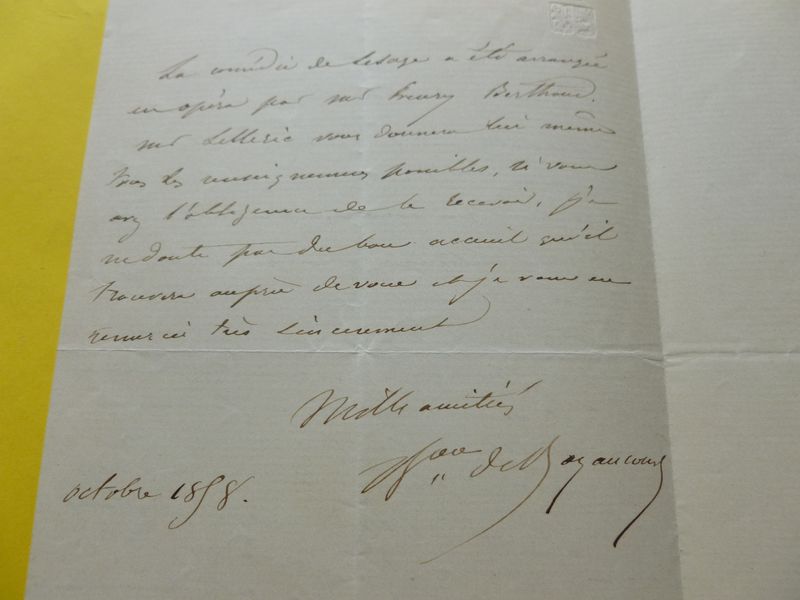 La comédie de Lesage a été arrangée
en opéra par Mr Henry Berthoud.
Mr Lellerie vous donnera lui même
tous les renseignemens possibles, si vous
avez l'obligeance de le recevoir, je
ne doute pas du bon accueil qu'il
trouvera auprès de vous et je vous en
remercie très sincerement
Mille amitiés
de Bazancourt
octobre 1858.